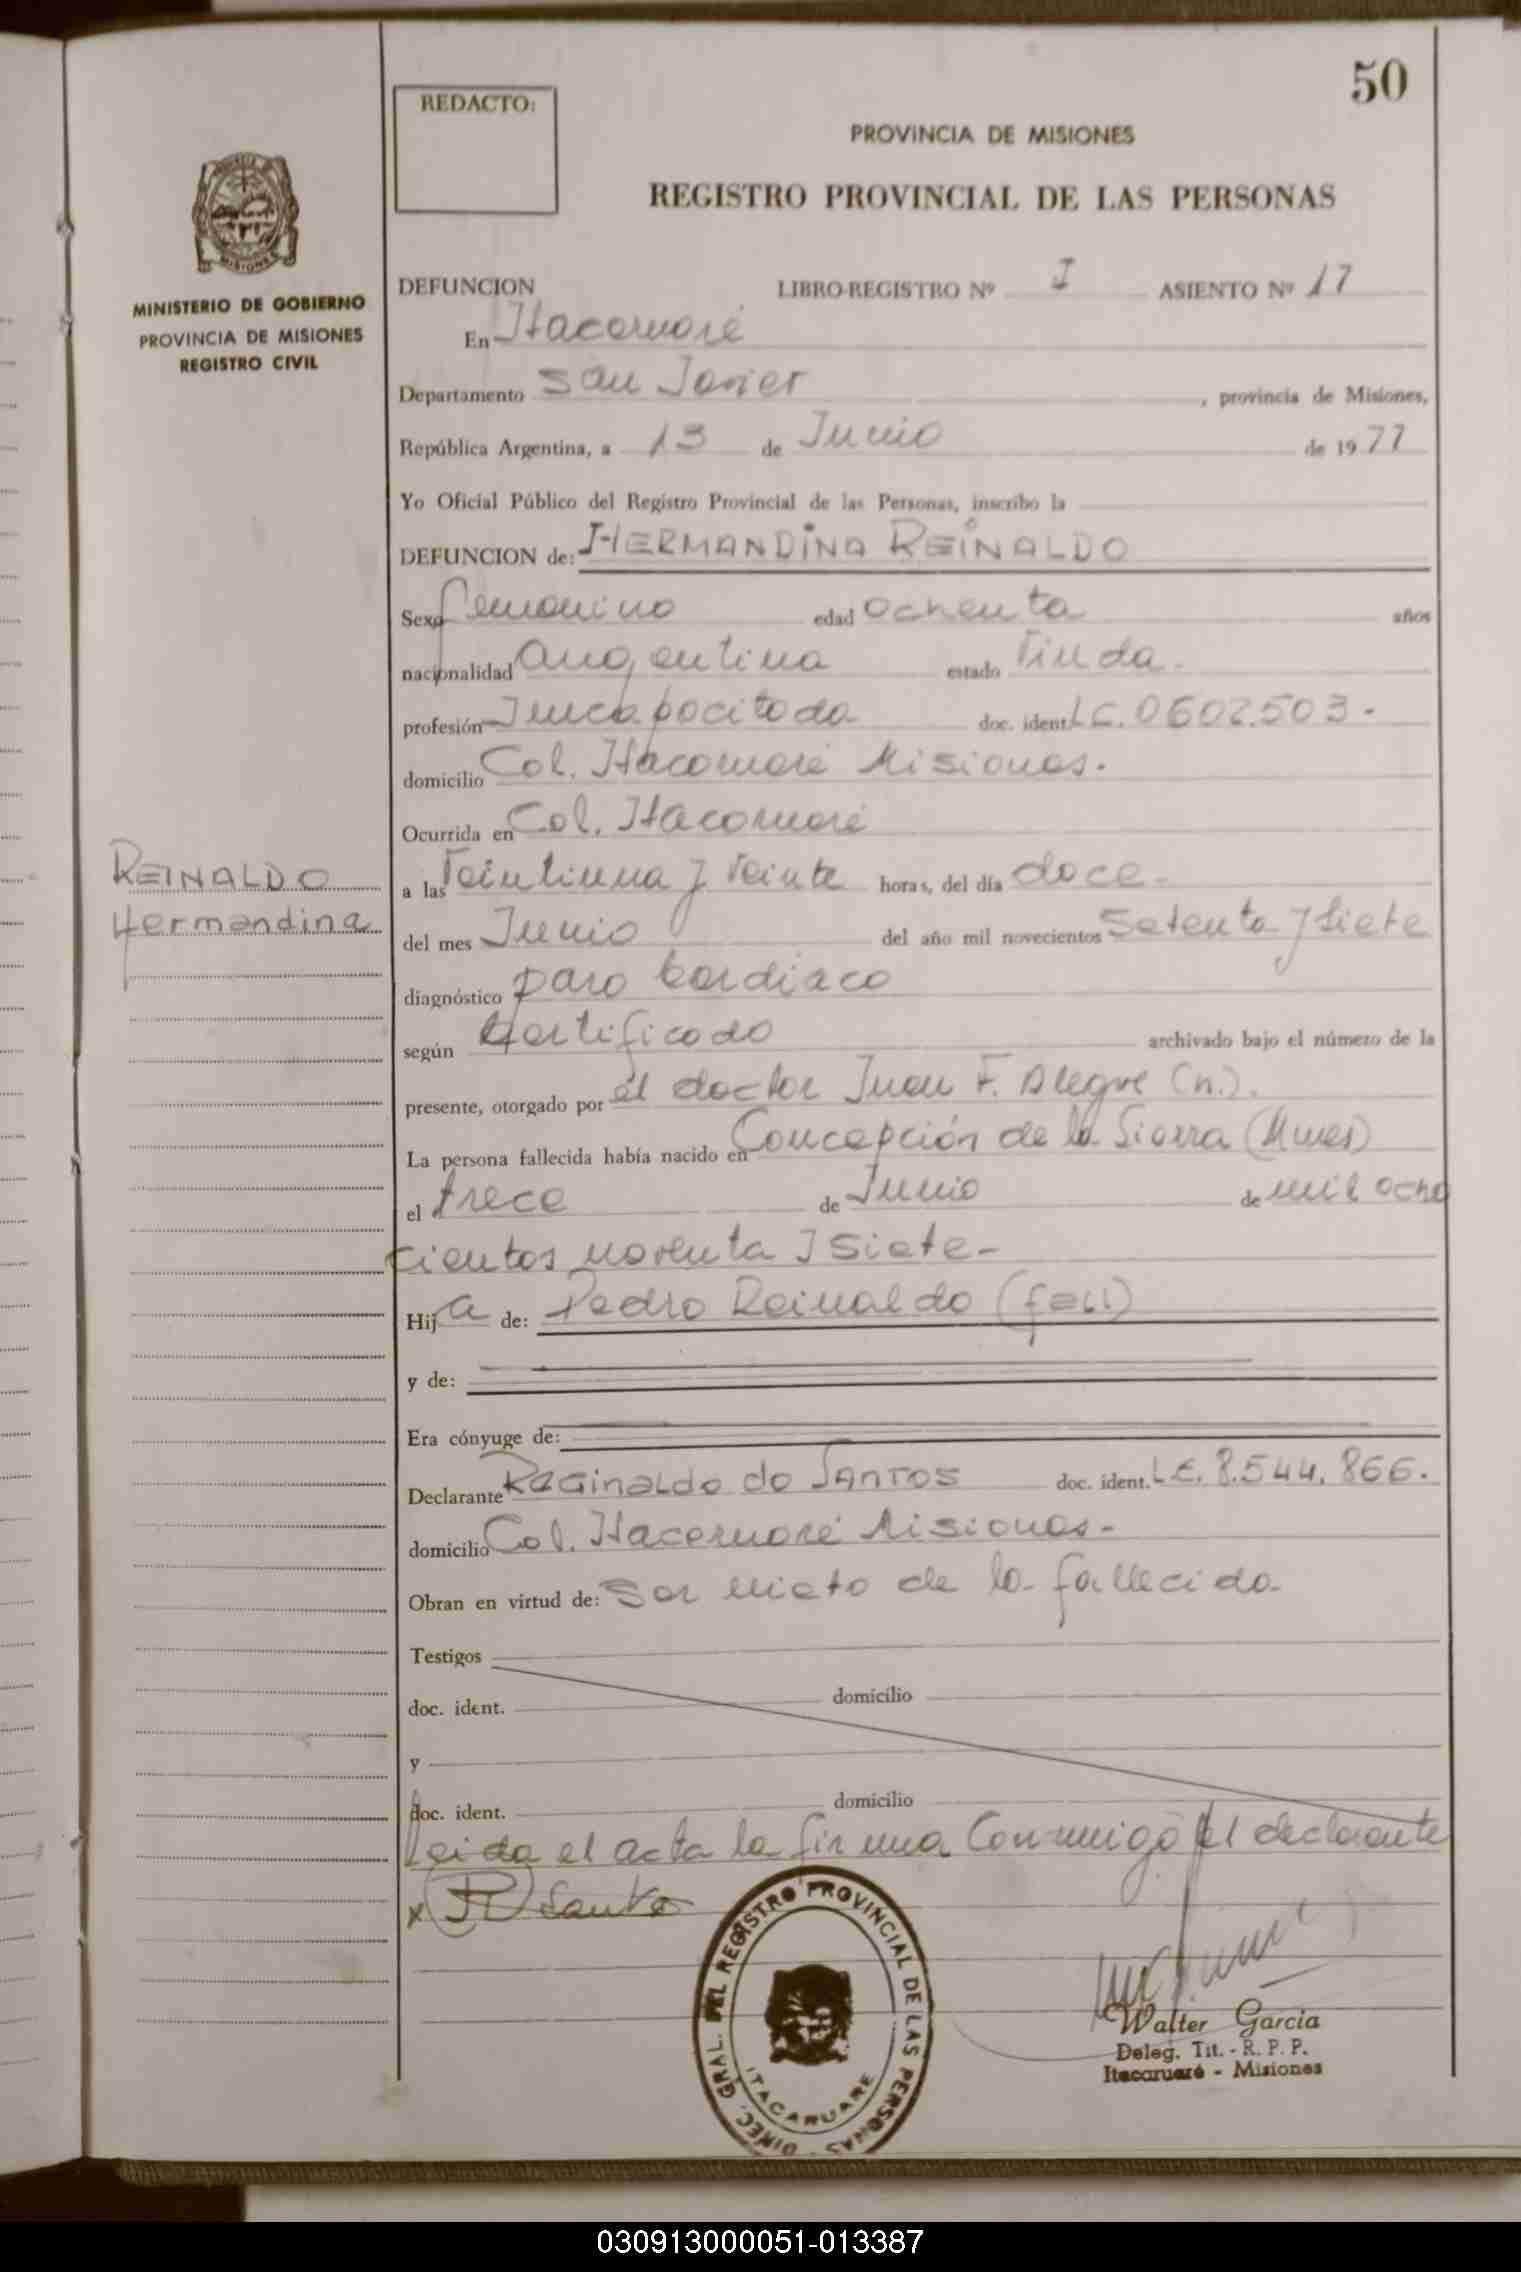 50
REDACTO:
PROVINCIA DE MISIONES
REGISTRO PROVINCIAL DE LAS PERSONAS
MISIONES
MINISTERIO DE GOBIERNO
PROVINCIA DE MISIONES
REGISTRO CIVIL
DEFUNCION LIBRO-REGISTRO Nº I ASIENTO Nº 17
En Itacaruaré
Departamento San Javier, provincia de Misiones,
República Argentina, a 13 de Junio de 1977
Yo Oficial Público del Registro Provincial de las Personas, inscribo la
DEFUNCION de: HERMANDINA REINALDO
Sexo femenino edad ochenta años
nacionalidad argentina estado Viuda.
profesión Incapacitada doc. ident. LC. 0602.503.-
domicilio Col. Itacaruaré Misiones.
Ocurrida en Col. Itacaruaré
REINALDO
Hermandina
a las Veintiuna y Veinte horas, del día doce-
del mes Junio del año mil novecientos setenta y siete
diagnóstico paro cardiaco
según certificado archivado bajo el número de la
presente, otorgado por el doctor Juan F. Alegre (n.).
La persona fallecida había nacido en Concepción de la Sierra (Mnes)
el trece de Junio de mil ocho
cientos noventa y siete-
Hija de: Pedro Reinaldo (fall)
y de:
Era cónyuge de:
Declarante Reginaldo do Santos doc. ident. L.E. 8.544.866.
domicilio Col. Itacaruaré Misiones-
Obran en virtud de: Ser nieto de la fallecida
Testigos
doc. ident. domicilio
y
doc. ident. domicilio
Leida el acta la firma Conmigo el declarante
x R Santo
DIREC. GRAL. DEL REGISTRO PROVINCIAL DE LAS PERSONAS - ITACARUARE
Walter Garcia
Deleg. Tit. - R. P. P.
Itacaruaré - Misiones
030913000051-013387